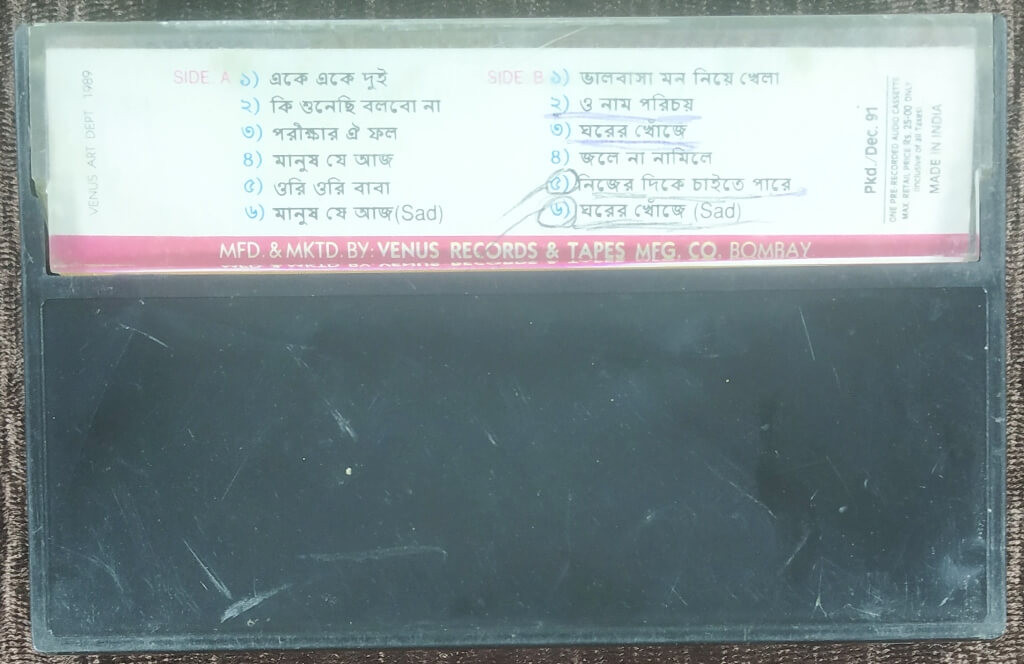 VENUS ART DEPT 1989
SIDE A
১) একে একে দুই
২) কি শুনেছি বলবো না
৩) পরীক্ষার ঐ ফল
৪) মানুষ যে আজ
৫) ওরি ওরি বাবা
৬) মানুষ যে আজ (Sad)
SIDE B
১) ভালবাসা মন নিয়ে খেলা
২) ও নাম পরিচয়
৩) ঘরের খোঁজে
৪) জলে না নামিলে
৫) নিজের দিকে চাইতে পারে
৬) ঘরের খোঁজে (Sad)
Pkd./Dec. 91
ONE PRE RECORDED AUDIO CASSETTE
MAX. RETAIL PRICE Rs. 25-00 ONLY
(Inclusive of all Taxes)
MADE IN INDIA
MFD. & MKTD. BY: VENUS RECORDS & TAPES MFG. CO. BOMBAY